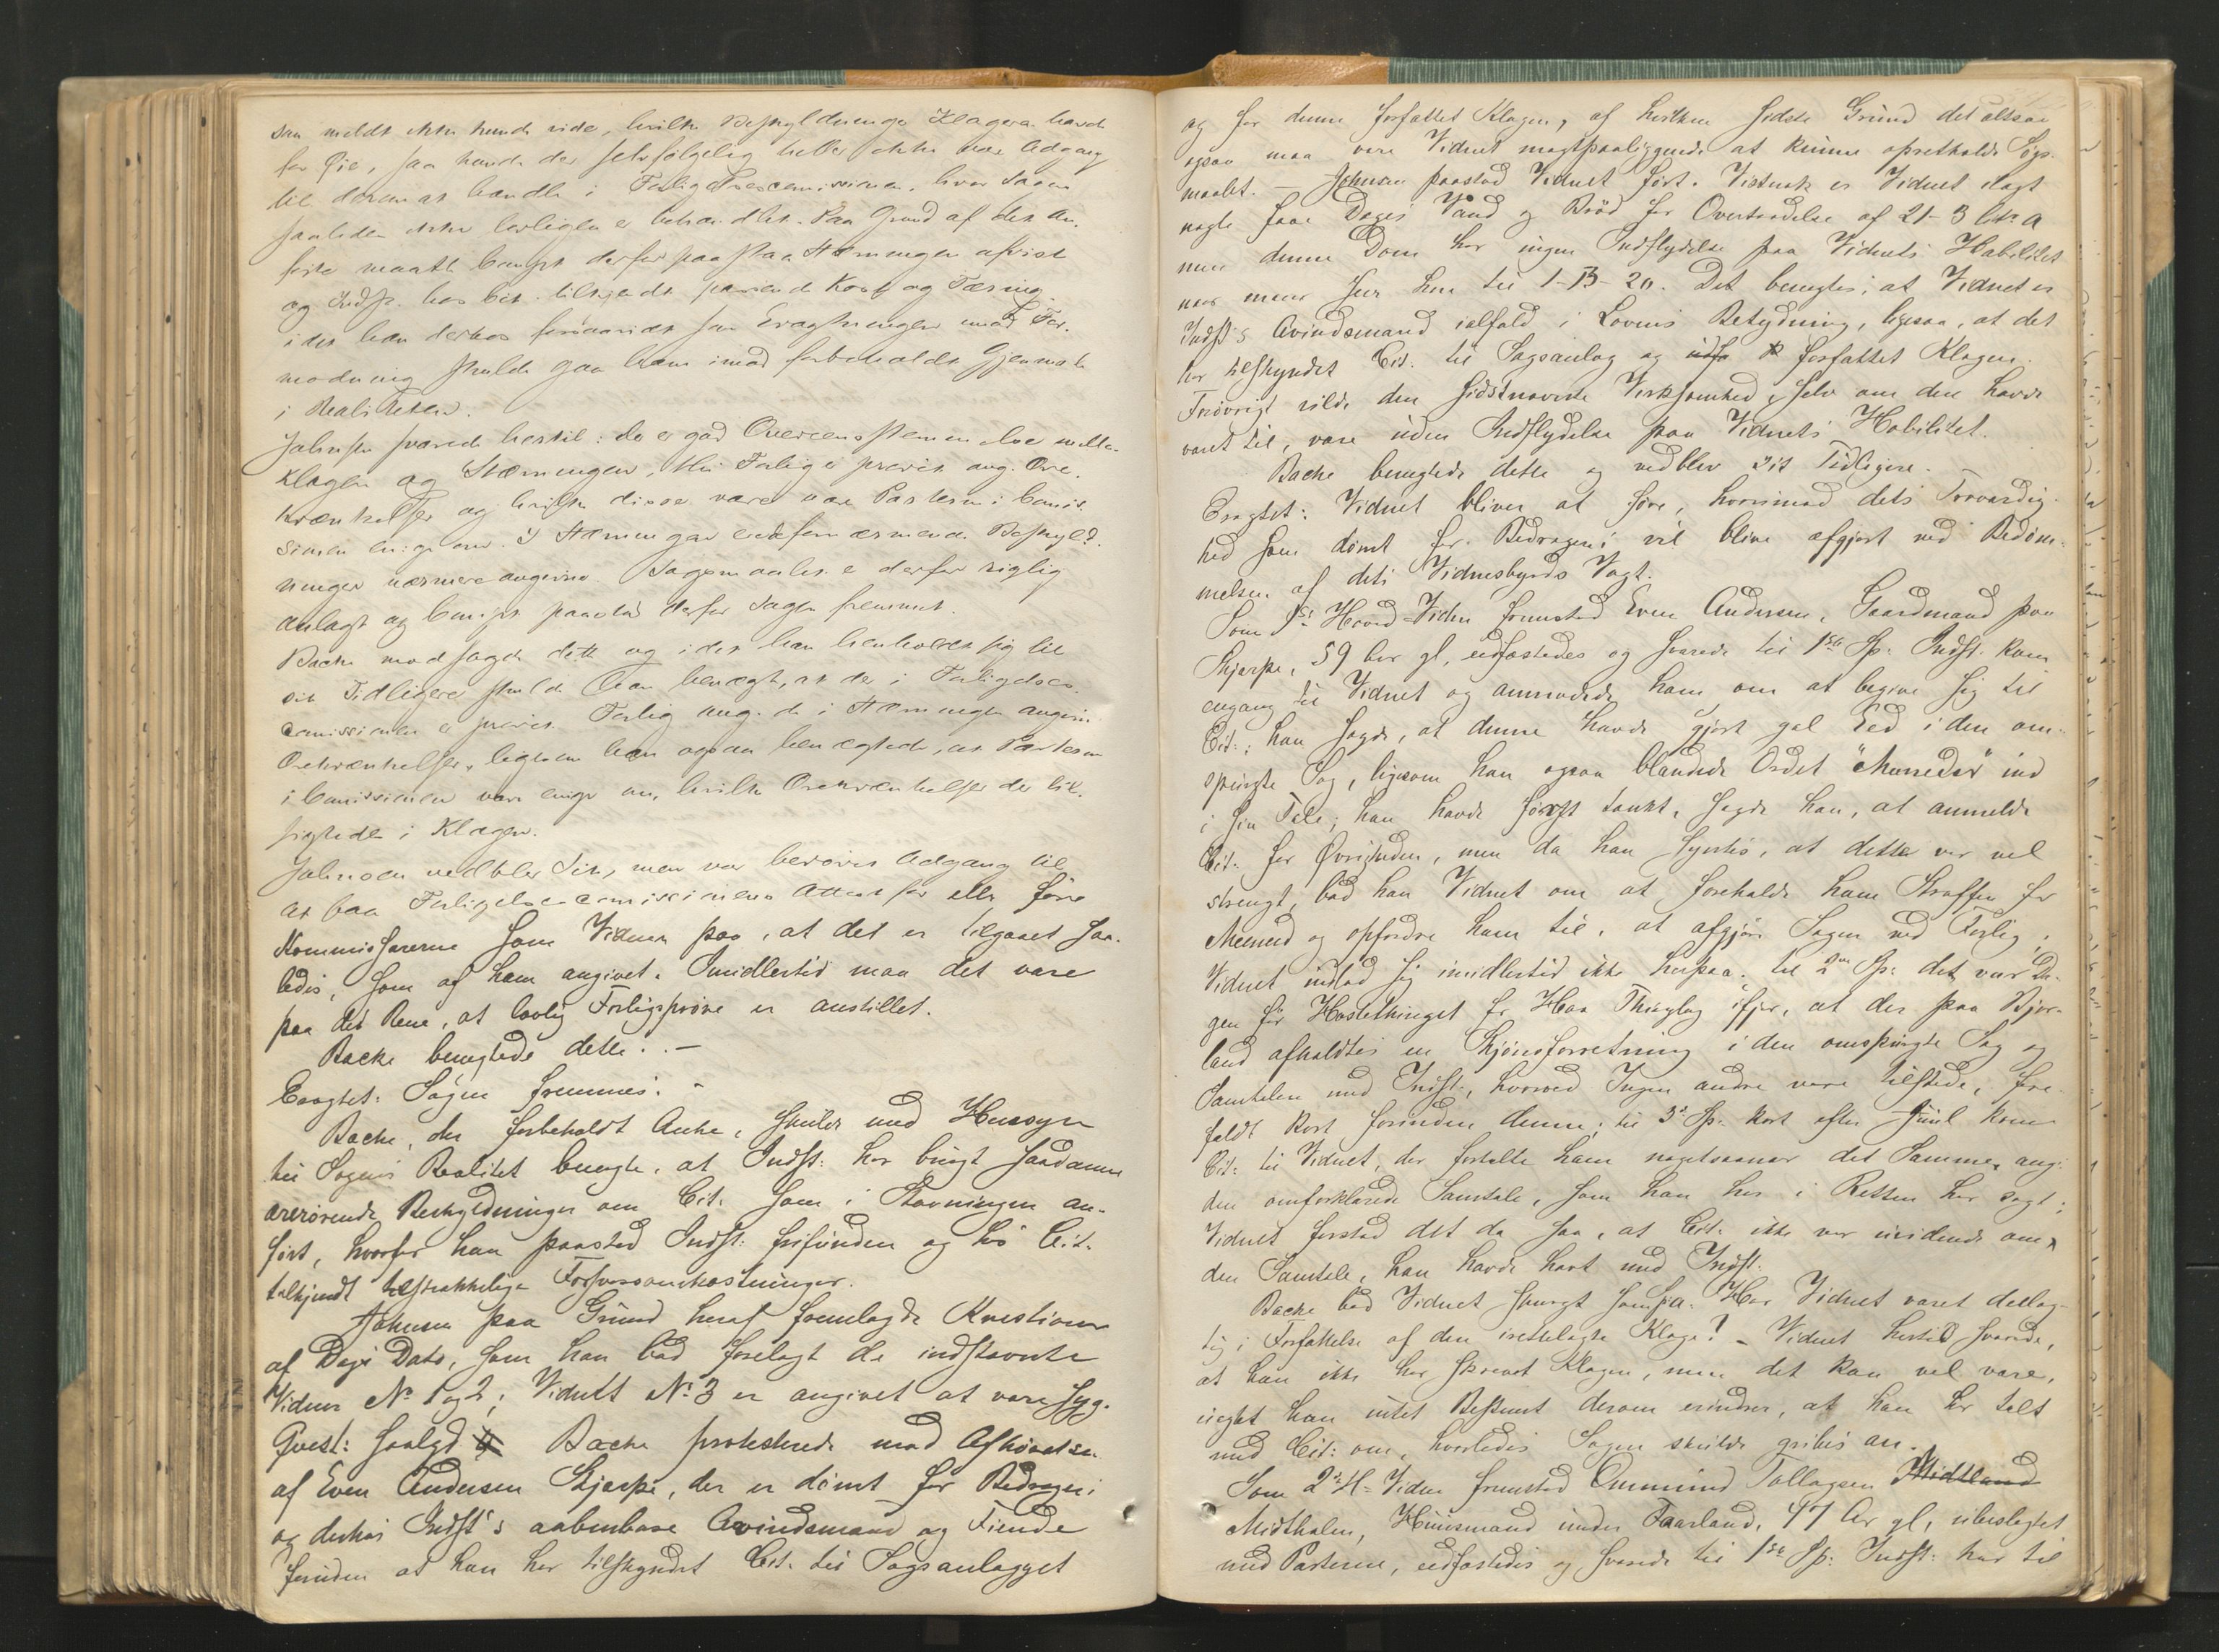 san meldt ikke kunde vide, hvilke Beskyldninger Klageren havde
for Øie, saa kunde der selvfølgelig heller ikke være Adgang
til derom at handle i Forligelsescomissionen, hvor Sagen
saaledes ikke lovligen er behandlet. Paa Grund af det An-
førte maatte Compt. derfor paastaa Stævningen afvist
og Indst. hos Cit. tilkjendt passende Kost og Tæring
idet han derhos forsaavidt som Eragtningen imod For-
modning skulde gaa ham imod forbeholdt Gjenmæle
i Realiteten.
Johnsen svarede hertil: der er god Overensstemmelse mellem
Klagen og Stævningen, thi Forlig er prøvet ang. Ære-
krænkelser og hvilke disse vare var Parterne i Comis-
sionen enige om. I Stævningen ere de fornærmende Beskyld-
ninger nærmere angivne. Søgsmaalet er derfor rigtig
anlagt og Compt. paastod derfor Sagen fremmet.
Backe modsagde dette og idet han henholdt sig til
sit Tidligere skulde han benægte, at der i Forligelses-
comissionen er prøvet Forlig ang. de i Stævningen angivne
Ærekrænkelser, ligesom han ogsaa benægtede, at Parterne
i Comissionen vare enige om, hvilke Ærekrænkelser der til-
sigtedes i Klagen.
Johnsen vedblev Sit, men var berøvet Adgang til
at faa Forligelsescomissionens Attest for eller føre
Kommissærerne som Vidner paa, at det er tilgaaet saa-
ledes, som af ham angivet. Imidlertid maa det være
paa det Rene, at lovlig Forligsprøve er anstillet.
Backe benegtede dette. –
Eragtet: Sagen fremmes. –
Backe, der forbeholdt Anke, skulde med Hensyn
til Sagens Realitet benegte, at Indst: har brugt saadanne
ærerørende Beskyldninger om Cit. som i Stævningen an-
ført, hvorfor han paastod Indst: frifunden og hos Cit.
tilkjendt tilstrækkelige Forsvarsomkostninger.
Johnsen paa Grund heraf fremlagde Kvestioner
af Dags Dato, som han bad forelagt de indstævnte
Vidner No 1 og 2; Vidnet No 3 er angivet at være syg.
Qvest: saalyd Backe protesterede mod Afhørelsen
af Even Andersen Skjerpe, der er dømt for Bedrageri
og derhos Indst's aabenbare Avindsmand og Fiende
foruden at han har tilskyndet Cit. til Sagsanlægget
og for denne forfattet Klagen, af hvilken sidste Grund det altsaa
ogsaa maa være Vidnet magtpaaliggende at kunne opretholde Søgs-
maalet. – Johnsen paastod Vidnet ført. Vistnok er Vidnet ilagt
nogle faae Dages Vand og Brød for Overtrædelse af 21-3 litr. a
men denne Dom har ingen Indflydelse paa Vidnets Habilitet
naar man ser hen til 1-13-20. Det benegtes, at Vidnet er
Indst's Avindsmand ialfald i Lovens Betydning, ligesaa, at det
har tilskyndet Cit. til Sagsanlæg og forfattet Klagen.
Forøvrigt vilde den sidstnævnte Virksomhed, selv om den havde
været til, være uden Indflydelse paa Vidnets Habilitet.
Backe benegtede dette og vedblev sit Tidligere.
Eragtet: Vidnet bliver at føre, hvorimod dets Troværdig-
hed som dømt for Bedrageri vil blive afgjort ved Bedøm-
melsen af dets Vidnesbyrds Vægt.
Som 1st Hoved-Vidne fremstod Even Andersen, Gaardmand paa
Skjerpe, 59 Aar gl, eedfæstedes og svarede til 1ste Sp: Indst. kom
engang til Vidnet og anmodede ham om at begive sig til
Cit:; han sagde, at denne havde gjort gal Eed i den om-
spurgte Sag, ligesom han ogsaa blandede Ordet "Meeneder" ind
i sin Tale; han havde først tænkt, sagde han, at anmelde
Cit. for Øvrigheden, men da han syntes, at dette var vel
strengt, bad han Vidnet om at foreholde ham Straffen for
Meeneed og opfordre ham til, at afgjøre Sagen ved Forlig;
Vidnet indlod sig imidlertid ikke herpaa; til 2det Sp: det var Da-
gen før Høstethinget for Haa Thinglag ifjor, at der paa Bjor-
land afholdtes en Skjønsforretning i den omspurgte Sag og
Samtalen med Indst., hvorved Ingen andre vare tilstede, fore-
faldt kort forinden denne; til 3die Sp: kort efter Juul kom
Cit: til Vidnet, der fortalte ham nogetsaanær det Samme ang.
den omforklarede Samtale, som han her i Retten har sagt;
Vidnet forstod det da saa, at Cit. ikke var uvidende om
den Samtale, han havde havt med Indst.
Backe bad Vidnet spurgt som saa: Har Vidnet været deelag-
tig i Forfattelse af den irettelagte Klage? – Vidnet hertil svarede,
at han ikke har skrevet Klagen, men det kan vel være,
uagtet han intet Bestemt derom erindrer, at han har talt
med Cit: om, hvorledes Sagen skulde gribes an.
Som 2det H-Vidne fremstod Ommund Tollagsen Midtland
Midthalen, Huusmand under Faarland, 47 Aar gl, ubeslægtet
med Parterne, eedfæstedes og svarede til 1ste Sp: Indst: har til